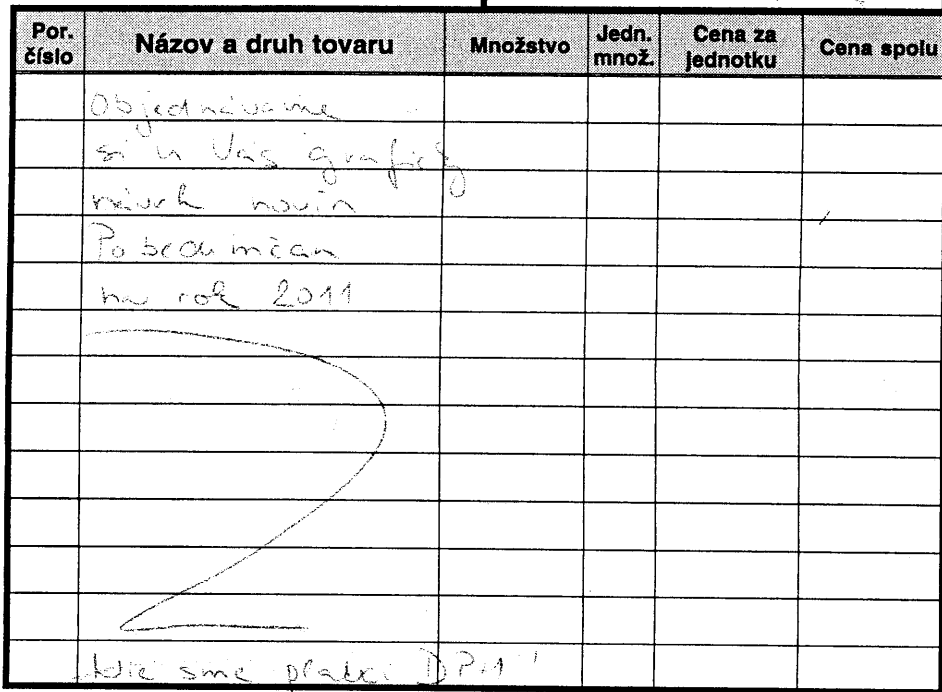 Por. číslo Názov a druh tovaru Množstvo Jedn. množ. Cena za jednotku Cena spolu
Objednávame
si u Vás grafický
návrh novín
Pobedimčan
na rok 2011
sme platci DPH